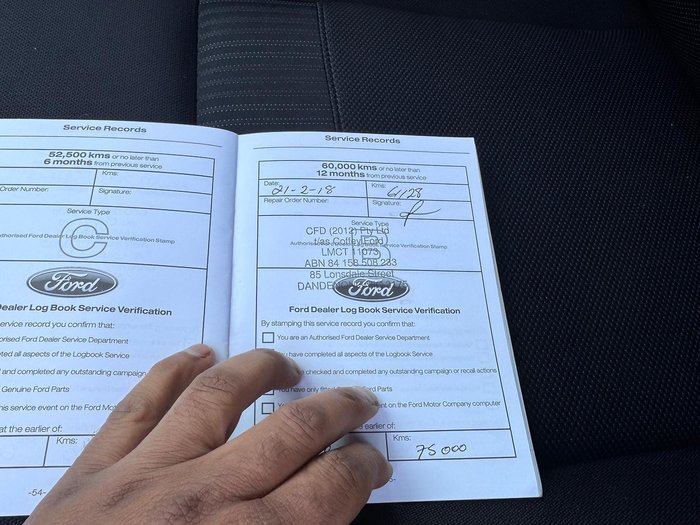 Service Records
52,500 kms or no later than
6 months from previous service
Kms:
Order Number:
Signature:
Service Type
C
Authorised Ford Dealer Log Book Service Verification Stamp
Ford
Dealer Log Book Service Verification
service record you confirm that:
orised Ford Dealer Service Department
ted all aspects of the Logbook Service
and completed any outstanding campaign
Genuine Ford Parts
this service event on the Ford Motor
at the earlier of:
Kms:
-54-
Service Records
60,000 kms or no later than
12 months from previous service
Date: 21-2-18
Kms: 61128
Repair Order Number:
Signature:
Service Type
B
Authorised Ford Dealer Log Book Service Verification Stamp
CFD (2012) Pty Ltd
t/as Coffey Ford
LMCT 11073
ABN 84 158 508 233
85 Lonsdale Street
Ford
Ford Dealer Log Book Service Verification
By stamping this service record you confirm that:
You are an Authorised Ford Dealer Service Department
You have completed all aspects of the Logbook Service
checked and completed any outstanding campaign or recall actions
You have only fitted Parts
on the Ford Motor Company computer
earlier of:
Kms:
75000